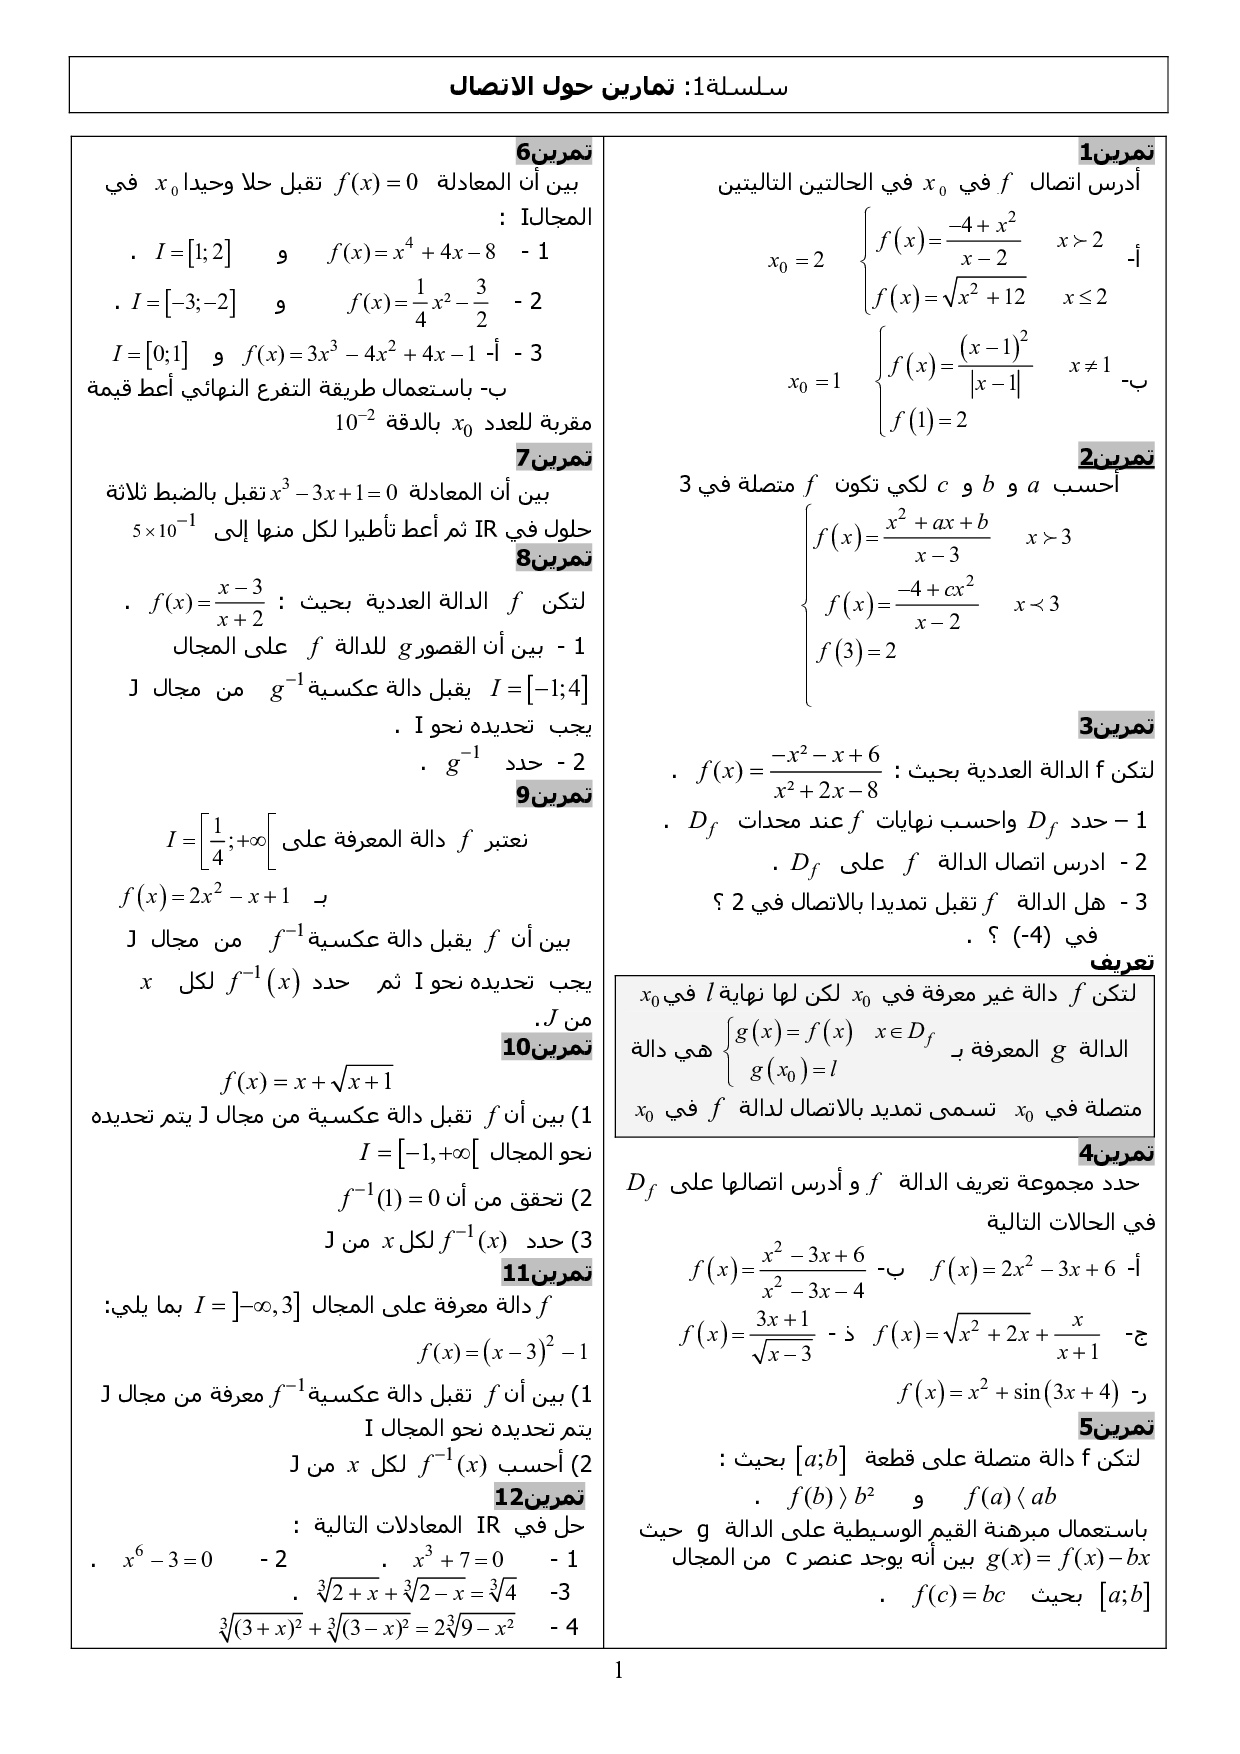 سلسلة1: تمارين حول الاتصال
تمرين1
أدرس اتصال f في x₀ في الحالتين التاليتين
أ- { f(x) = (−4 + x²)/(x − 2)   x ≻ 2 ; f(x) = √(x² + 12)   x ≤ 2   x₀ = 2
ب- { f(x) = (x − 1)²/|x − 1|   x ≠ 1 ; f(1) = 2   x₀ = 1
تمرين2
أحسب a و b و c لكي تكون f متصلة في 3
{ f(x) = (x² + ax + b)/(x − 3)   x ≻ 3
f(x) = (−4 + cx²)/(x − 2)   x ≺ 3
f(3) = 2
تمرين3
لتكن f الدالة العددية بحيث : f(x) = (−x² − x + 6)/(x² + 2x − 8) .
1 – حدد D_f واحسب نهايات f عند محدات D_f .
2 - ادرس اتصال الدالة f على D_f .
3 - هل الدالة f تقبل تمديدا بالاتصال في 2 ؟
في (4-) ؟ .
تعريف
لتكن f دالة غير معرفة في x₀ لكن لها نهاية l في x₀
الدالة g المعرفة بـ { g(x) = f(x)   x ∈ D_f ; g(x₀) = l هي دالة
متصلة في x₀ تسمى تمديد بالاتصال لدالة f في x₀
تمرين4
حدد مجموعة تعريف الدالة f و أدرس اتصالها على D_f
في الحالات التالية
أ- f(x) = 2x² − 3x + 6   ب- f(x) = (x² − 3x + 6)/(x² − 3x − 4)
ج- f(x) = √(x² + 2x) + x/(x + 1)   ذ - f(x) = (3x + 1)/√(x − 3)
ر- f(x) = x² + sin(3x + 4)
تمرين5
لتكن f دالة متصلة على قطعة [a;b] بحيث :
f(a) ⟨ ab و f(b) ⟩ b² .
باستعمال مبرهنة القيم الوسيطية على الدالة g حيث
g(x) = f(x) − bx بين أنه يوجد عنصر c من المجال
[a;b] بحيث f(c) = bc .
تمرين6
بين أن المعادلة f(x) = 0 تقبل حلا وحيدا x₀ في
المجالI :
1 - f(x) = x⁴ + 4x − 8 و I = [1; 2] .
2 - f(x) = 1/4 x² − 3/2 و I = [−3; −2] .
3 - أ- f(x) = 3x³ − 4x² + 4x − 1 و I = [0;1]
ب- باستعمال طريقة التفرع النهائي أعط قيمة
مقربة للعدد x₀ بالدقة 10⁻²
تمرين7
بين أن المعادلة x³ − 3x + 1 = 0 تقبل بالضبط ثلاثة
حلول في IR ثم أعط تأطيرا لكل منها إلى 5×10⁻¹
تمرين8
لتكن f الدالة العددية بحيث : f(x) = (x − 3)/(x + 2) .
1 - بين أن القصور g للدالة f على المجال
I = [−1;4] يقبل دالة عكسية g⁻¹ من مجال J
يجب تحديده نحو I .
2 - حدد g⁻¹ .
تمرين9
نعتبر f دالة المعرفة على I = [1/4 ; +∞[
بـ f(x) = 2x² − x + 1
بين أن f يقبل دالة عكسية f⁻¹ من مجال J
يجب تحديده نحو I ثم حدد f⁻¹(x) لكل x
من J.
تمرين10
f(x) = x + √(x + 1)
1) بين أن f تقبل دالة عكسية من مجال J يتم تحديده
نحو المجال I = [−1, +∞[
2) تحقق من أن f⁻¹(1) = 0
3) حدد f⁻¹(x) لكل x من J
تمرين11
f دالة معرفة على المجال I = ]−∞, 3] بما يلي:
f(x) = (x − 3)² − 1
1) بين أن f تقبل دالة عكسية f⁻¹ معرفة من مجال J
يتم تحديده نحو المجال I
2) أحسب f⁻¹(x) لكل x من J
تمرين12
حل في IR المعادلات التالية :
1 - x³ + 7 = 0 .   2 - x⁶ − 3 = 0 .
3- ∛(2 + x) + ∛(2 − x) = ∛4 .
4 - ∛((3 + x)²) + ∛((3 − x)²) = 2∛(9 − x²)
1